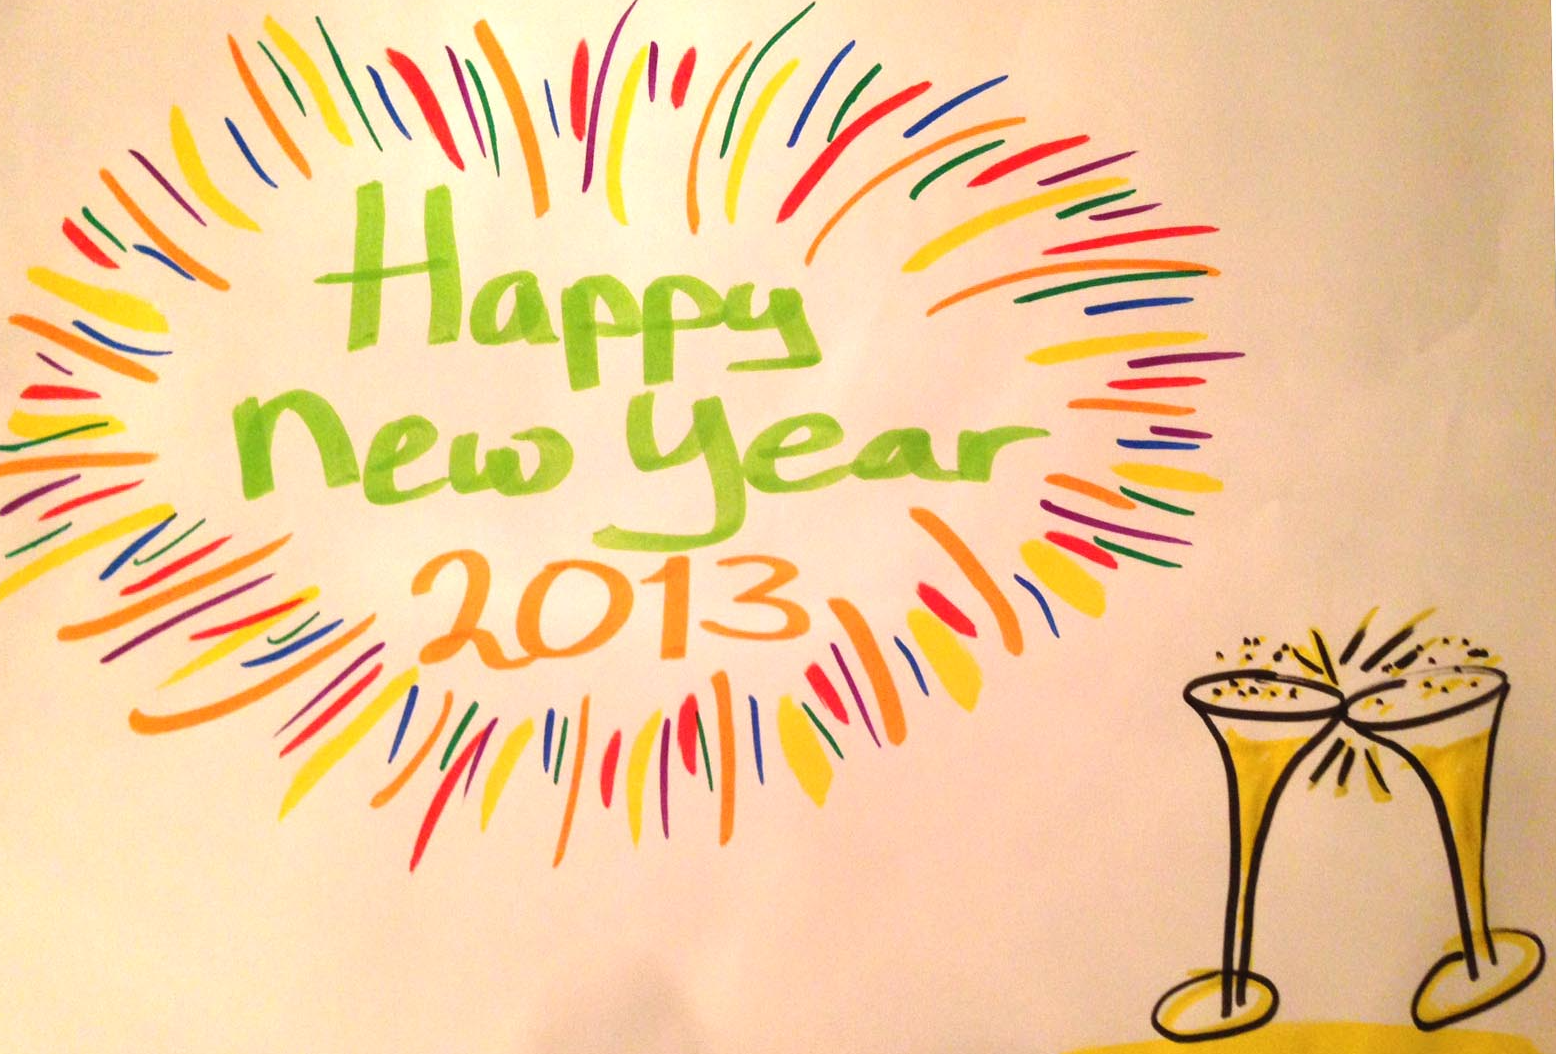 Happy
New Year
2013